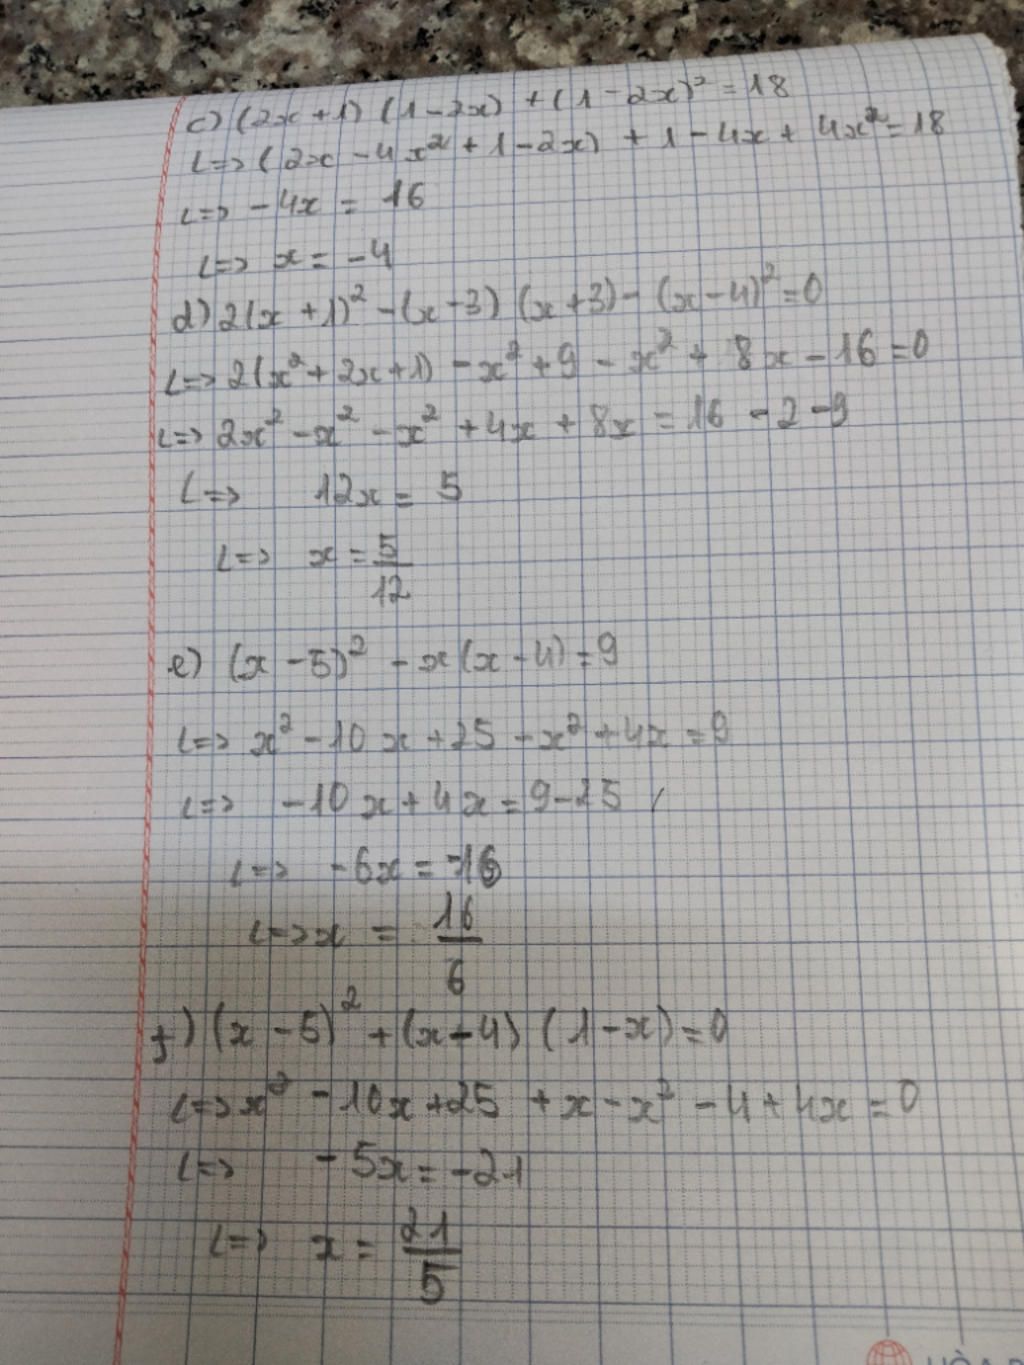 c) (2x + 1) (1 - 2x) + (1 - 2x)² = 18
<=> (2x - 4x² + 1 - 2x) + 1 - 4x + 4x² = 18
<=> - 4x = 16
<=> x = -4
d) 2(x + 1)² - (x - 3) (x + 3) - (x - 4)² = 0
<=> 2(x² + 2x + 1) - x² + 9 - x² + 8x - 16 = 0
<=> 2x² - x² - x² + 4x + 8x = 16 - 2 - 9
<=> 12x = 5
<=> x = 5/12
e) (x - 5)² - x(x - 4) = 9
<=> x² - 10x + 25 - x² + 4x = 9
<=> - 10x + 4x = 9 - 25
<=> - 6x = -16
<=> x = 16/6
f) (x - 5)² + (x - 4) (1 - x) = 0
<=> x² - 10x + 25 + x - x² - 4 + 4x = 0
<=> - 5x = -21
<=> x = 21/5